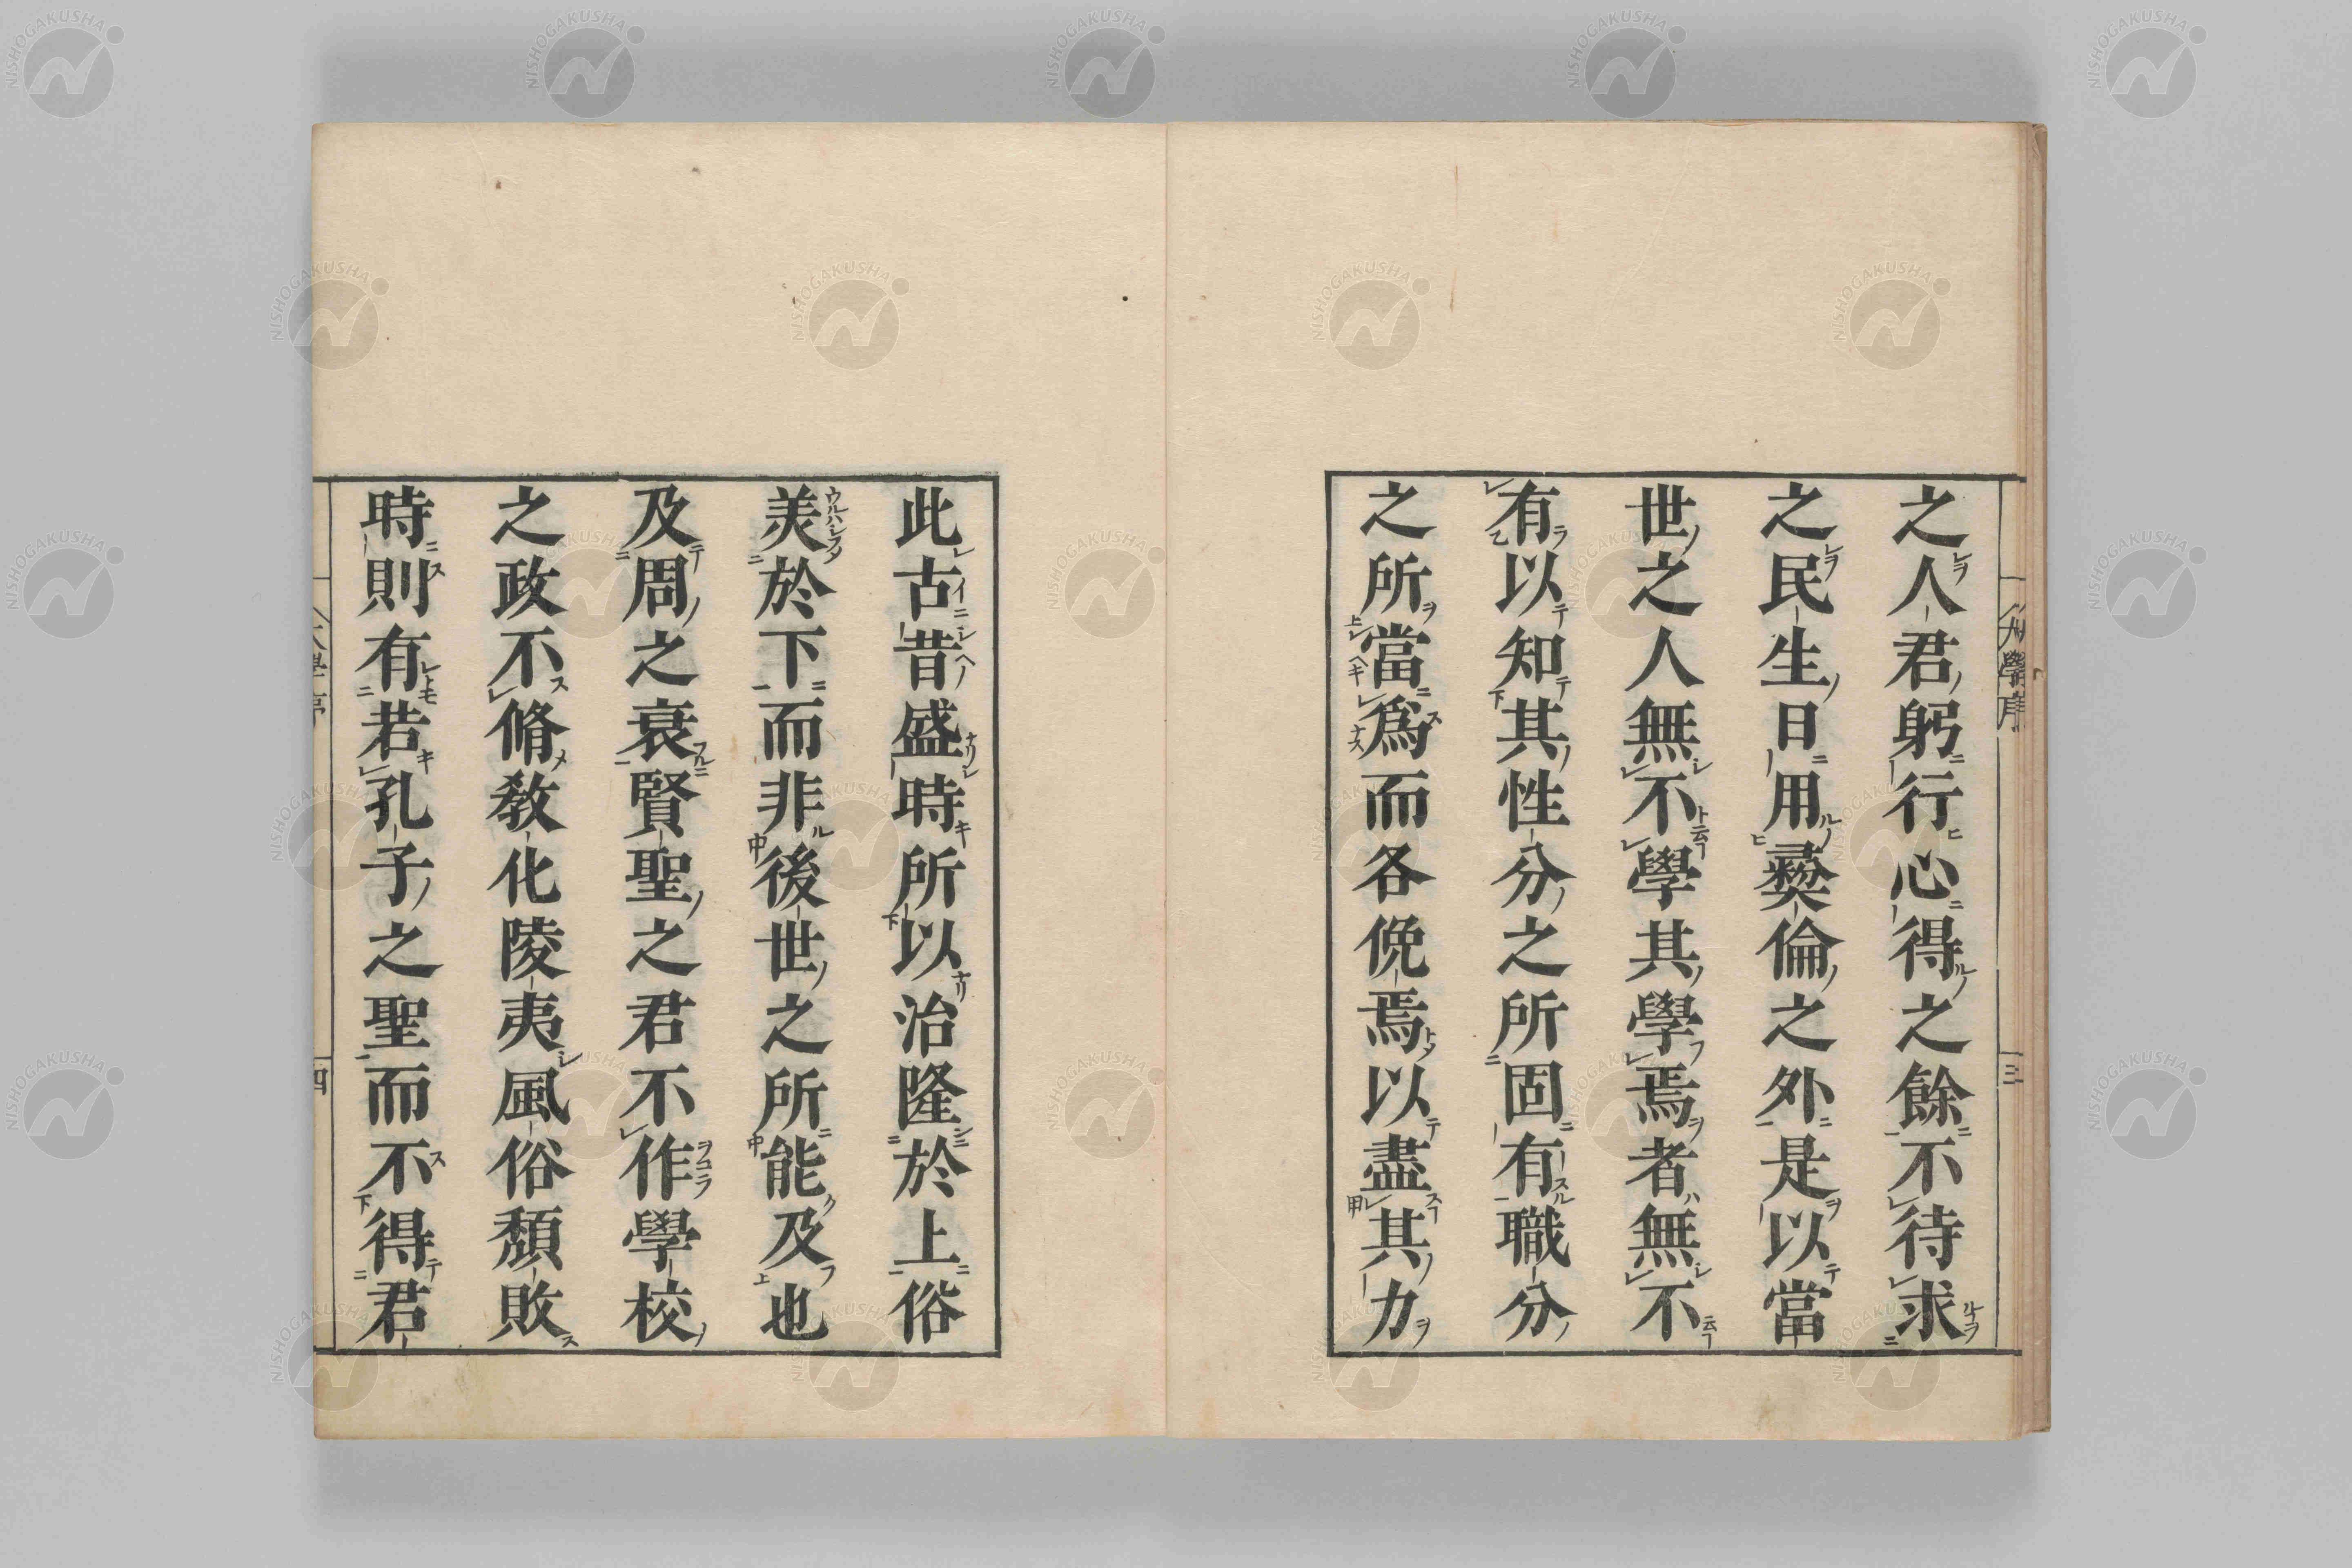 之人君躬行心得之餘不待求
之民生日用彜倫之外是以當
世之人無不學其學焉者無不
有以知其性分之所固有職分
之所當爲而各俛焉以盡其力
大學序 三
此古昔盛時所以治隆於上俗
美於下而非後世之所能及也
及周之衰賢聖之君不作學校
之政不脩敎化陵夷風俗頽敗
時則有若孔子之聖而不得君
大學序 四
NISHOGAKUSHA